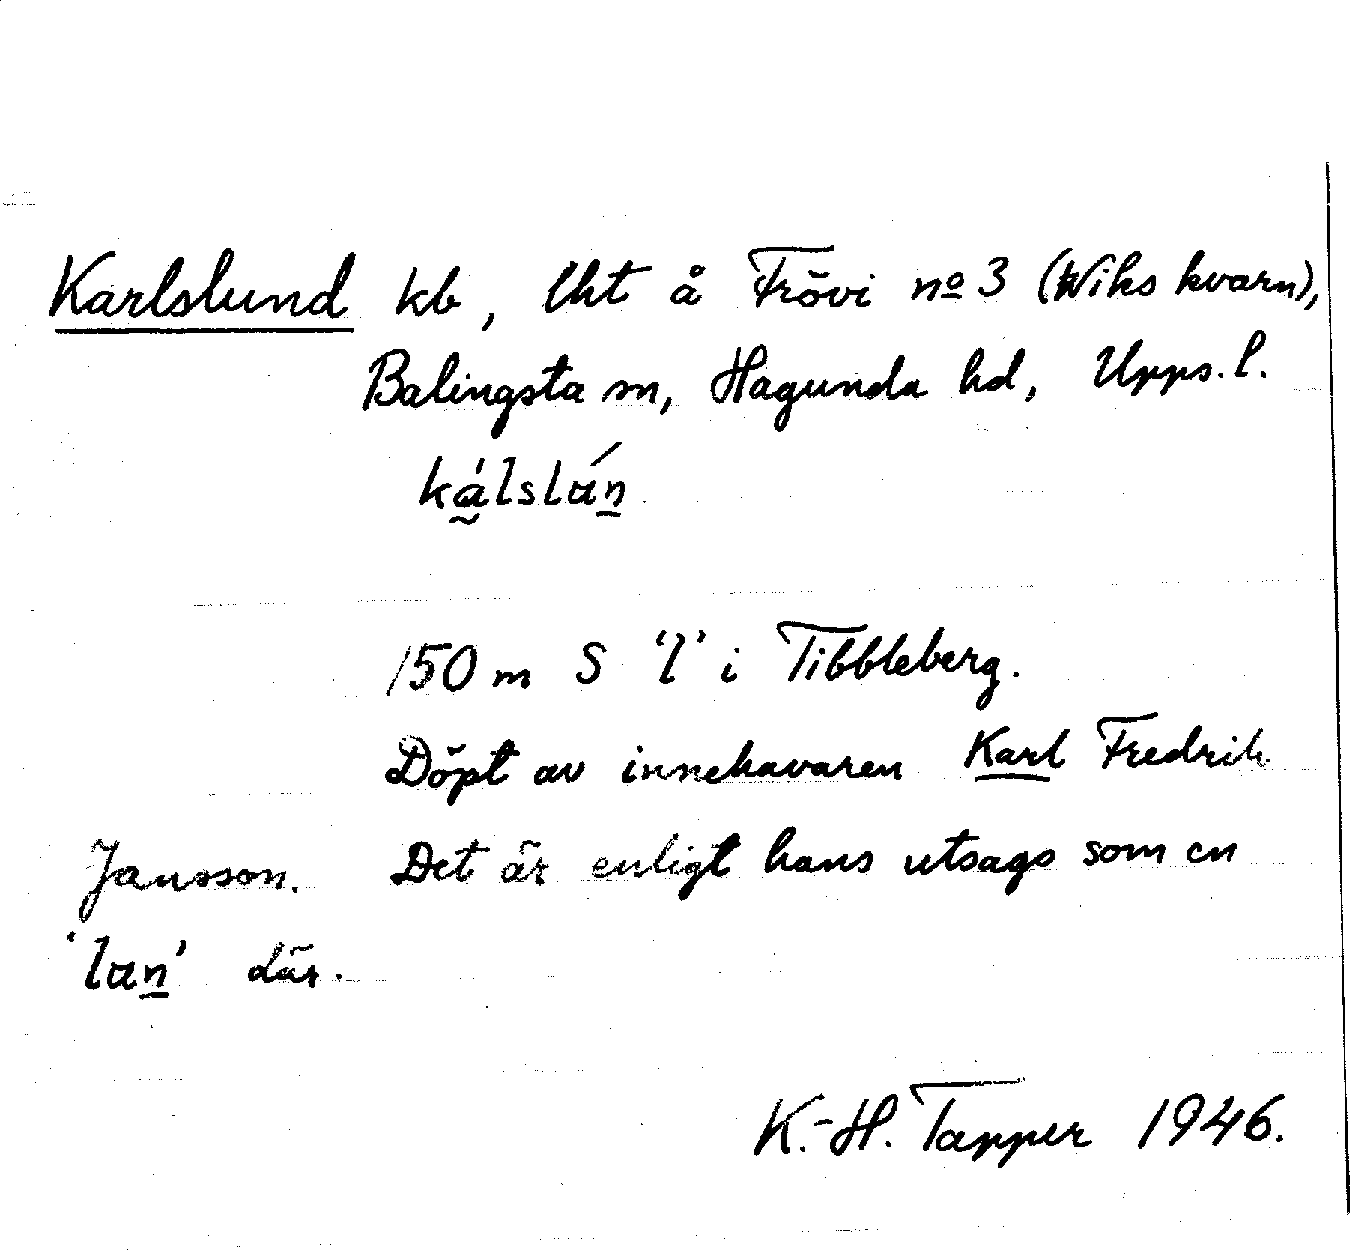 Karlslund kb, lht å Frövi nº 3 (Wiks kvarn),
Balingsta sn, Hagunda hd, Upps. l.
ká̰lslán̲
150 m S 'l' i Tibbleberg.
Döpt av innehavaren Karl Fredrik
Jansson. Det är enligt hans utsago som en
'lan̲' där.
K.-H. Tapper 1946.